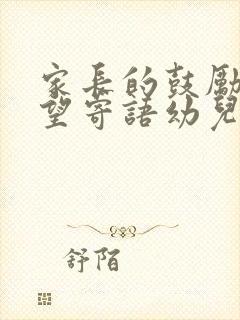 家長的鼓勵
望寄語幼兒
舒陌